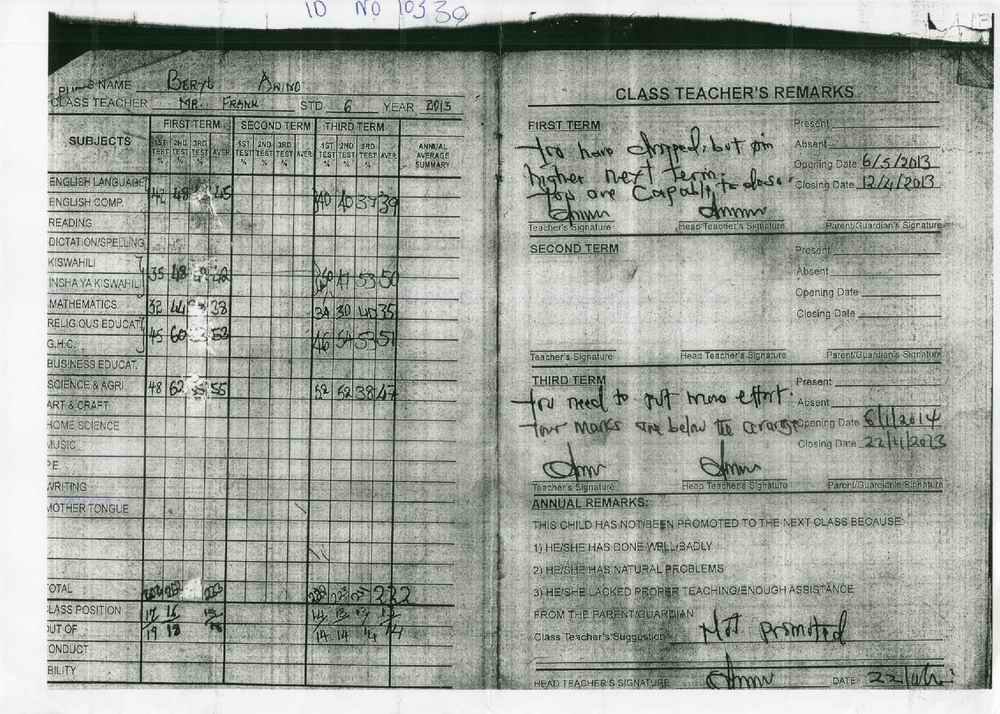 ID NO 10330
NAME BERYL AWINO
CLASS TEACHER MR. FRANK STD 6 YEAR 2013
SUBJECTS FIRST TERM SECOND TERM THIRD TERM ANNUAL AVERAGE SUMMARY
1ST TEST % 2ND TEST % 3RD TEST % AVER 1ST TEST % 2ND TEST % 3RD TEST % AVER 1ST TEST % 2ND TEST % 3RD TEST % AVER
ENGLISH LANGUAGE
ENGLISH COMP. 42 48 45 40 40 37 39
READING
DICTATION/SPELLING
KISWAHILI
INSHA YA KISWAHILI 35 48 42 41 53 50
MATHEMATICS 32 44 38 34 30 40 35
RELIGIOUS EDUCAT
G.H.C. 45 60 53 46 54 53 51
BUSINESS EDUCAT.
SCIENCE & AGRI 48 62 55 55 52 52 38 47
ART & CRAFT
HOME SCIENCE
MUSIC
PE
WRITING
MOTHER TONGUE
OTAL 223 222
CLASS POSITION 17 16 14 13
OUT OF 19 18 14 14 14 14
ONDUCT
BILITY
CLASS TEACHER'S REMARKS
FIRST TERM Present
You have dropped, but aim Absent
higher next term. Opening Date 6/5/2013
You are capable to do so. Closing Date 12/4/2013
Teacher's Signature Head Teacher's Signature Parent/Guardian's Signature
SECOND TERM Present
Absent
Opening Date
Closing Date
Teacher's Signature Head Teacher's Signature Parent/Guardian's Signature
THIRD TERM Present
You need to put more effort. Absent
Your marks are below the average Opening Date 6/1/2014
Closing Date 22/11/2013
Teacher's Signature Head Teacher's Signature Parent/Guardian's Signature
ANNUAL REMARKS:
THIS CHILD HAS NOT/BEEN PROMOTED TO THE NEXT CLASS BECAUSE
1) HE/SHE HAS DONE WELL/BADLY
2) HE/SHE HAS NATURAL PROBLEMS
3) HE/SHE LACKED PROPER TEACHING/ENOUGH ASSISTANCE
FROM THE PARENT/GUARDIAN
Class Teacher's Suggestion Not promoted
HEAD TEACHER'S SIGNATURE DATE